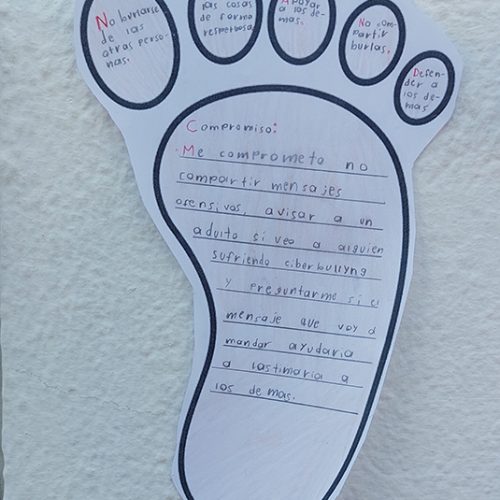 No burlarse
de las
otras perso-
nas.
las cosas
de forma
respetuosa
Apoyar
a los de-
mas.
No com-
partir
burlas.
Defen-
der a
los de-
mas
Compromiso:
Me comprometo no
compartir mensajes
ofensivos, avisar a un
adulto si veo a alguien
sufriendo ciberbullyng
y preguntarme si el
mensaje que voy a
mandar ayudaria
a lastimaria a
los demas.